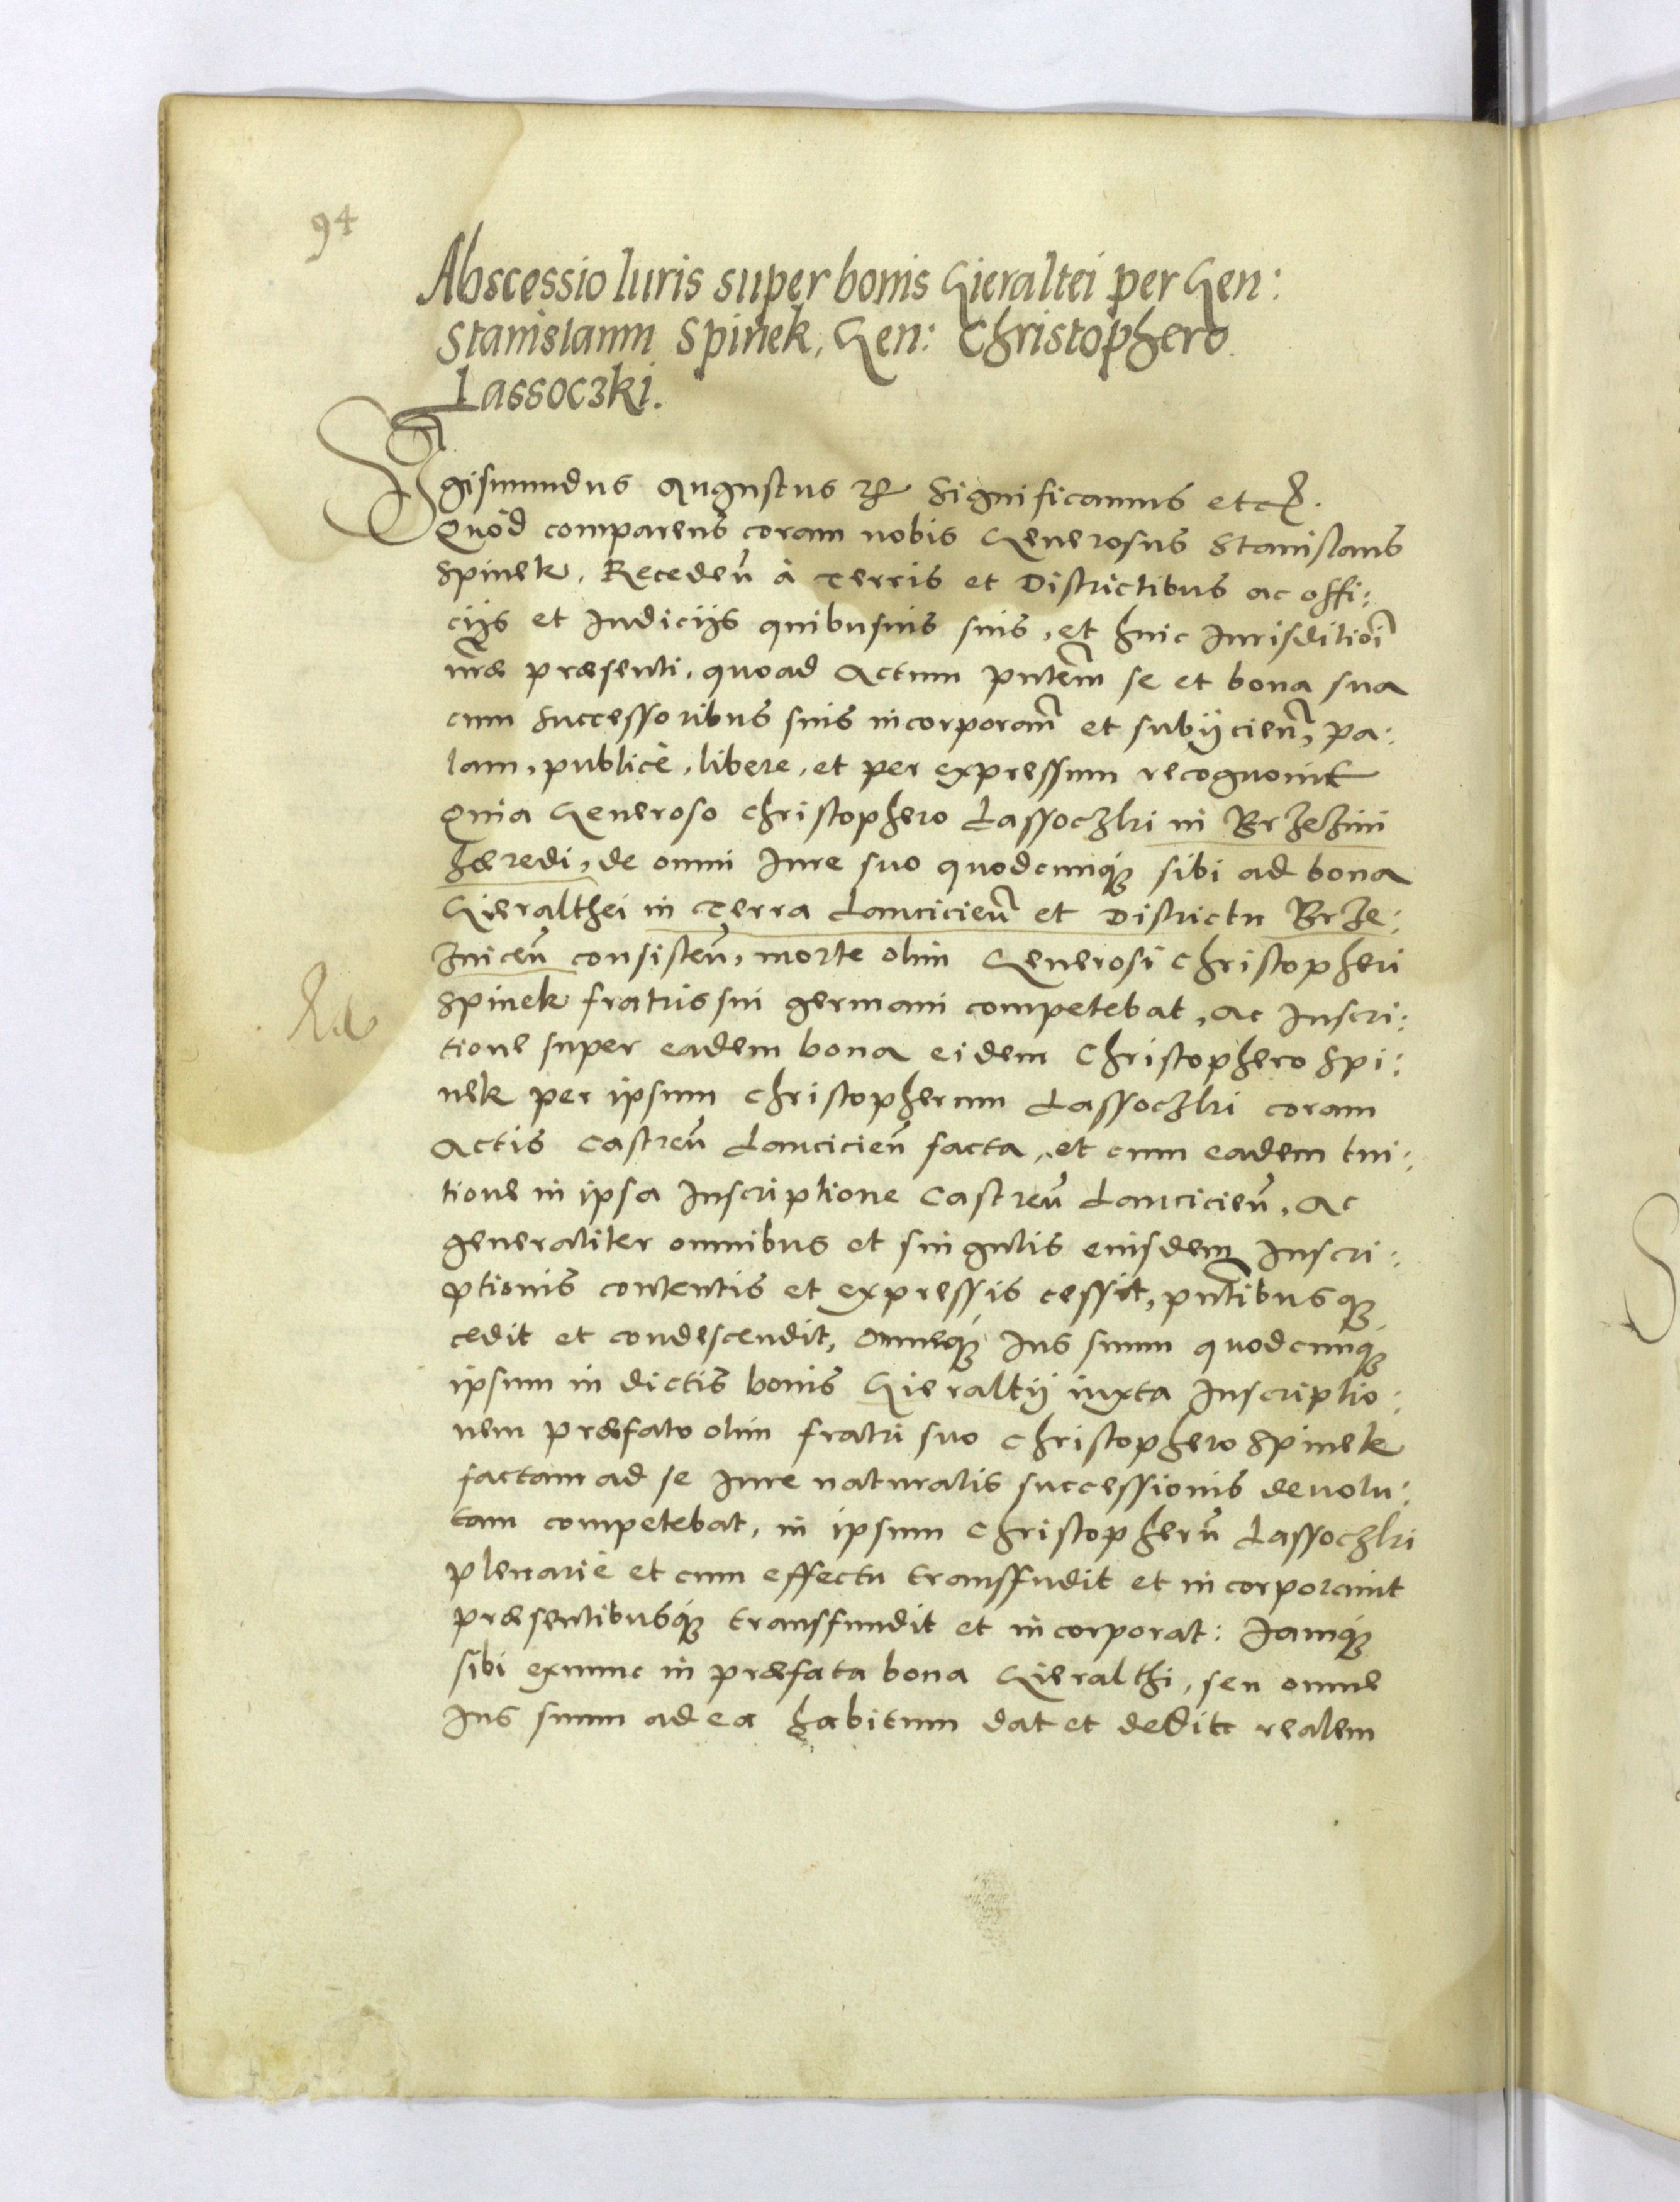 94
Abscessio Iuris super bonis Gieraltei per Gen:
Stanislaum Spinek, Gen: Christophero
Lassoczki.
Sigismundus Augustus Significamus etc.
Quòd comparens coram nobis Generosus Stanislaus
Spinek, Recedeñ à Terris et Districtibus ac offi:
cijs et Iudicijs quibusuis suis, et huic Iurisditioñi
nr̃æ præsenti, quoad Actum pñtem se et bona sua
cum Successoribus suis incorporañ et subijcieñ, pa:
lam, publicè, libere, et per expressum recognouit
Quia Generoso Christophero Lassoczki in Brzezini
hæredi, de omni Iure suo quodcunq; sibi ad bona
Gieralthei in Terra Lancicieñ et Districtu Brze:
zniceñ consisteñ, morte olim Generosi Christopheri
Spinek fratris sui germani competebat, Ac Inscri:
tione super eadem bona eidem Christophero Spi:
nek per ipsum Christopherum Lassoczki coram
Actis Castreñ Lancicieñ facta, et cum eadem tui:
tione in ipsa Inscriptione Castreñ Lancicieñ, Ac
generaliter omnibus et singulis eiusdem Inscri:
ptionis contentis et expressis cessit, pñtibusq;
cedit et condescendit, Omneq; Ius suum quodcunq;
ipsum in dictis bonis Gieraltij iuxta Inscriptio:
nem præfato olim fratri suo Christophero Spinek
factam ad se Iure naturalis successionis deuolu:
tam competebat, in ipsum Christopherũ Lassoczki
plenariè et cum effectu transfudit et incorporauit
præsentibusq; transfundit et incorporat: Iamq;
sibi exnunc in præfata bona Gieralthi, seu omne
Ius suum ad ea habitum dat et dedit realem